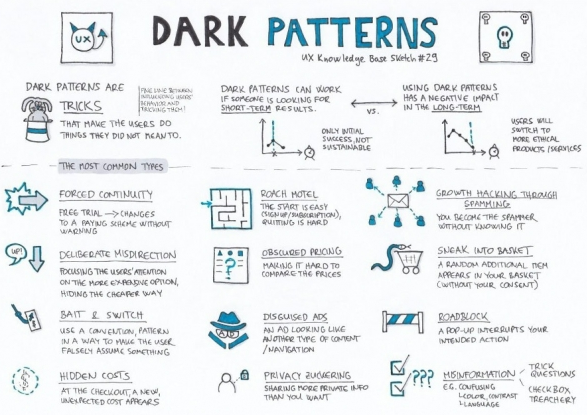 UX
DARK PATTERNS
UX Knowledge Base Sketch #29
DARK PATTERNS ARE
TRICKS
THAT MAKE THE USERS DO
THINGS THEY DID NOT MEAN TO.
FINE LINE BETWEEN
INFLUENCING USERS'
BEHAVIOR AND
TRICKING THEM!
DARK PATTERNS CAN WORK
IF SOMEONE IS LOOKING FOR
SHORT-TERM RESULTS.
VS.
USING DARK PATTERNS
HAS A NEGATIVE IMPACT
IN THE LONG-TERM
ONLY INITIAL
SUCCESS, NOT
SUSTAINABLE
USERS WILL
SWITCH TO
MORE ETHICAL
PRODUCTS/SERVICES
THE MOST COMMON TYPES
FORCED CONTINUITY
FREE TRIAL → CHANGES
TO A PAYING SCHEME WITHOUT
WARNING
ROACH MOTEL
THE START IS EASY
(SIGNUP/SUBSCRIPTION),
QUITTING IS HARD
GROWTH HACKING THROUGH
SPAMMING
YOU BECOME THE SPAMMER
WITHOUT KNOWING IT
UP!
DELIBERATE MISDIRECTION
FOCUSING THE USERS' ATTENTION
ON THE MORE EXPENSIVE OPTION,
HIDING THE CHEAPER WAY
?
OBSCURED PRICING
MAKING IT HARD TO
COMPARE THE PRICES
SNEAK INTO BASKET
A RANDOM ADDITIONAL ITEM
APPEARS IN YOUR BASKET
(WITHOUT YOUR CONSENT)
BAIT & SWITCH
USE A CONVENTION, PATTERN
IN A WAY TO MAKE THE USER
FALSELY ASSUME SOMETHING
DISGUISED ADS
AN AD LOOKING LIKE
ANOTHER TYPE OF CONTENT
/NAVIGATION
ROADBLOCK
A POP-UP INTERRUPTS YOUR
INTENDED ACTION
$
HIDDEN COSTS
AT THE CHECKOUT, A NEW,
UNEXPECTED COST APPEARS
PRIVACY ZUCKERING
SHARING MORE PRIVATE INFO
THAN YOU WANT
???
MISINFORMATION
E.G. CONFUSING
COLOR, CONTRAST
LANGUAGE
TRICK
QUESTIONS
CHECKBOX
TREACHERY